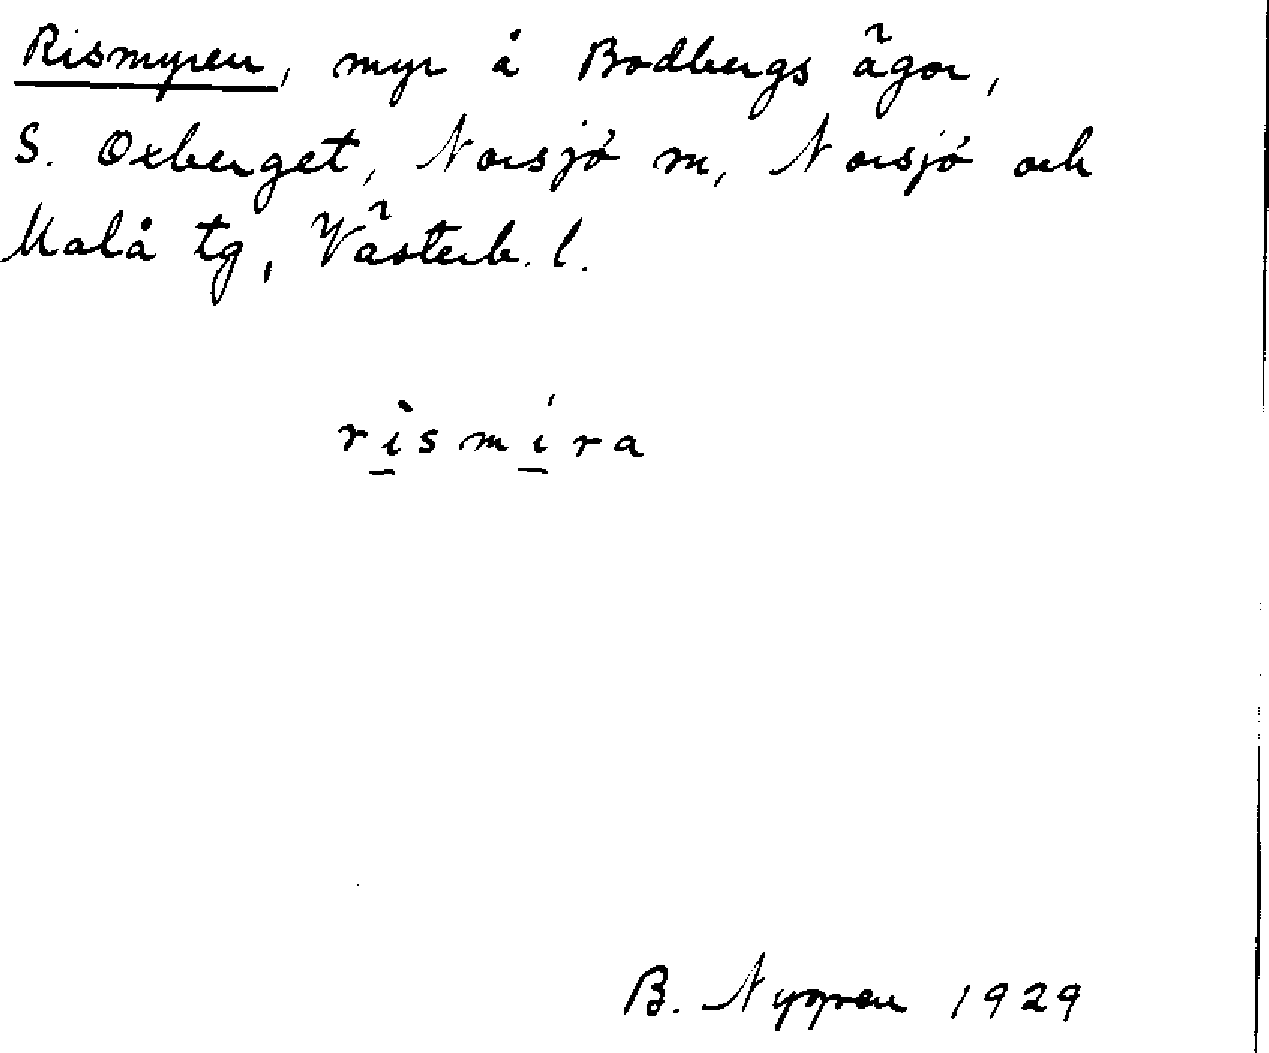 Rismyren, myr å Bodbergs ägor,
S. Oxberget, Norsjö sn, Norsjö och
Malå tg, Västerb. l.
rìsmíra
B. Nygren 1929